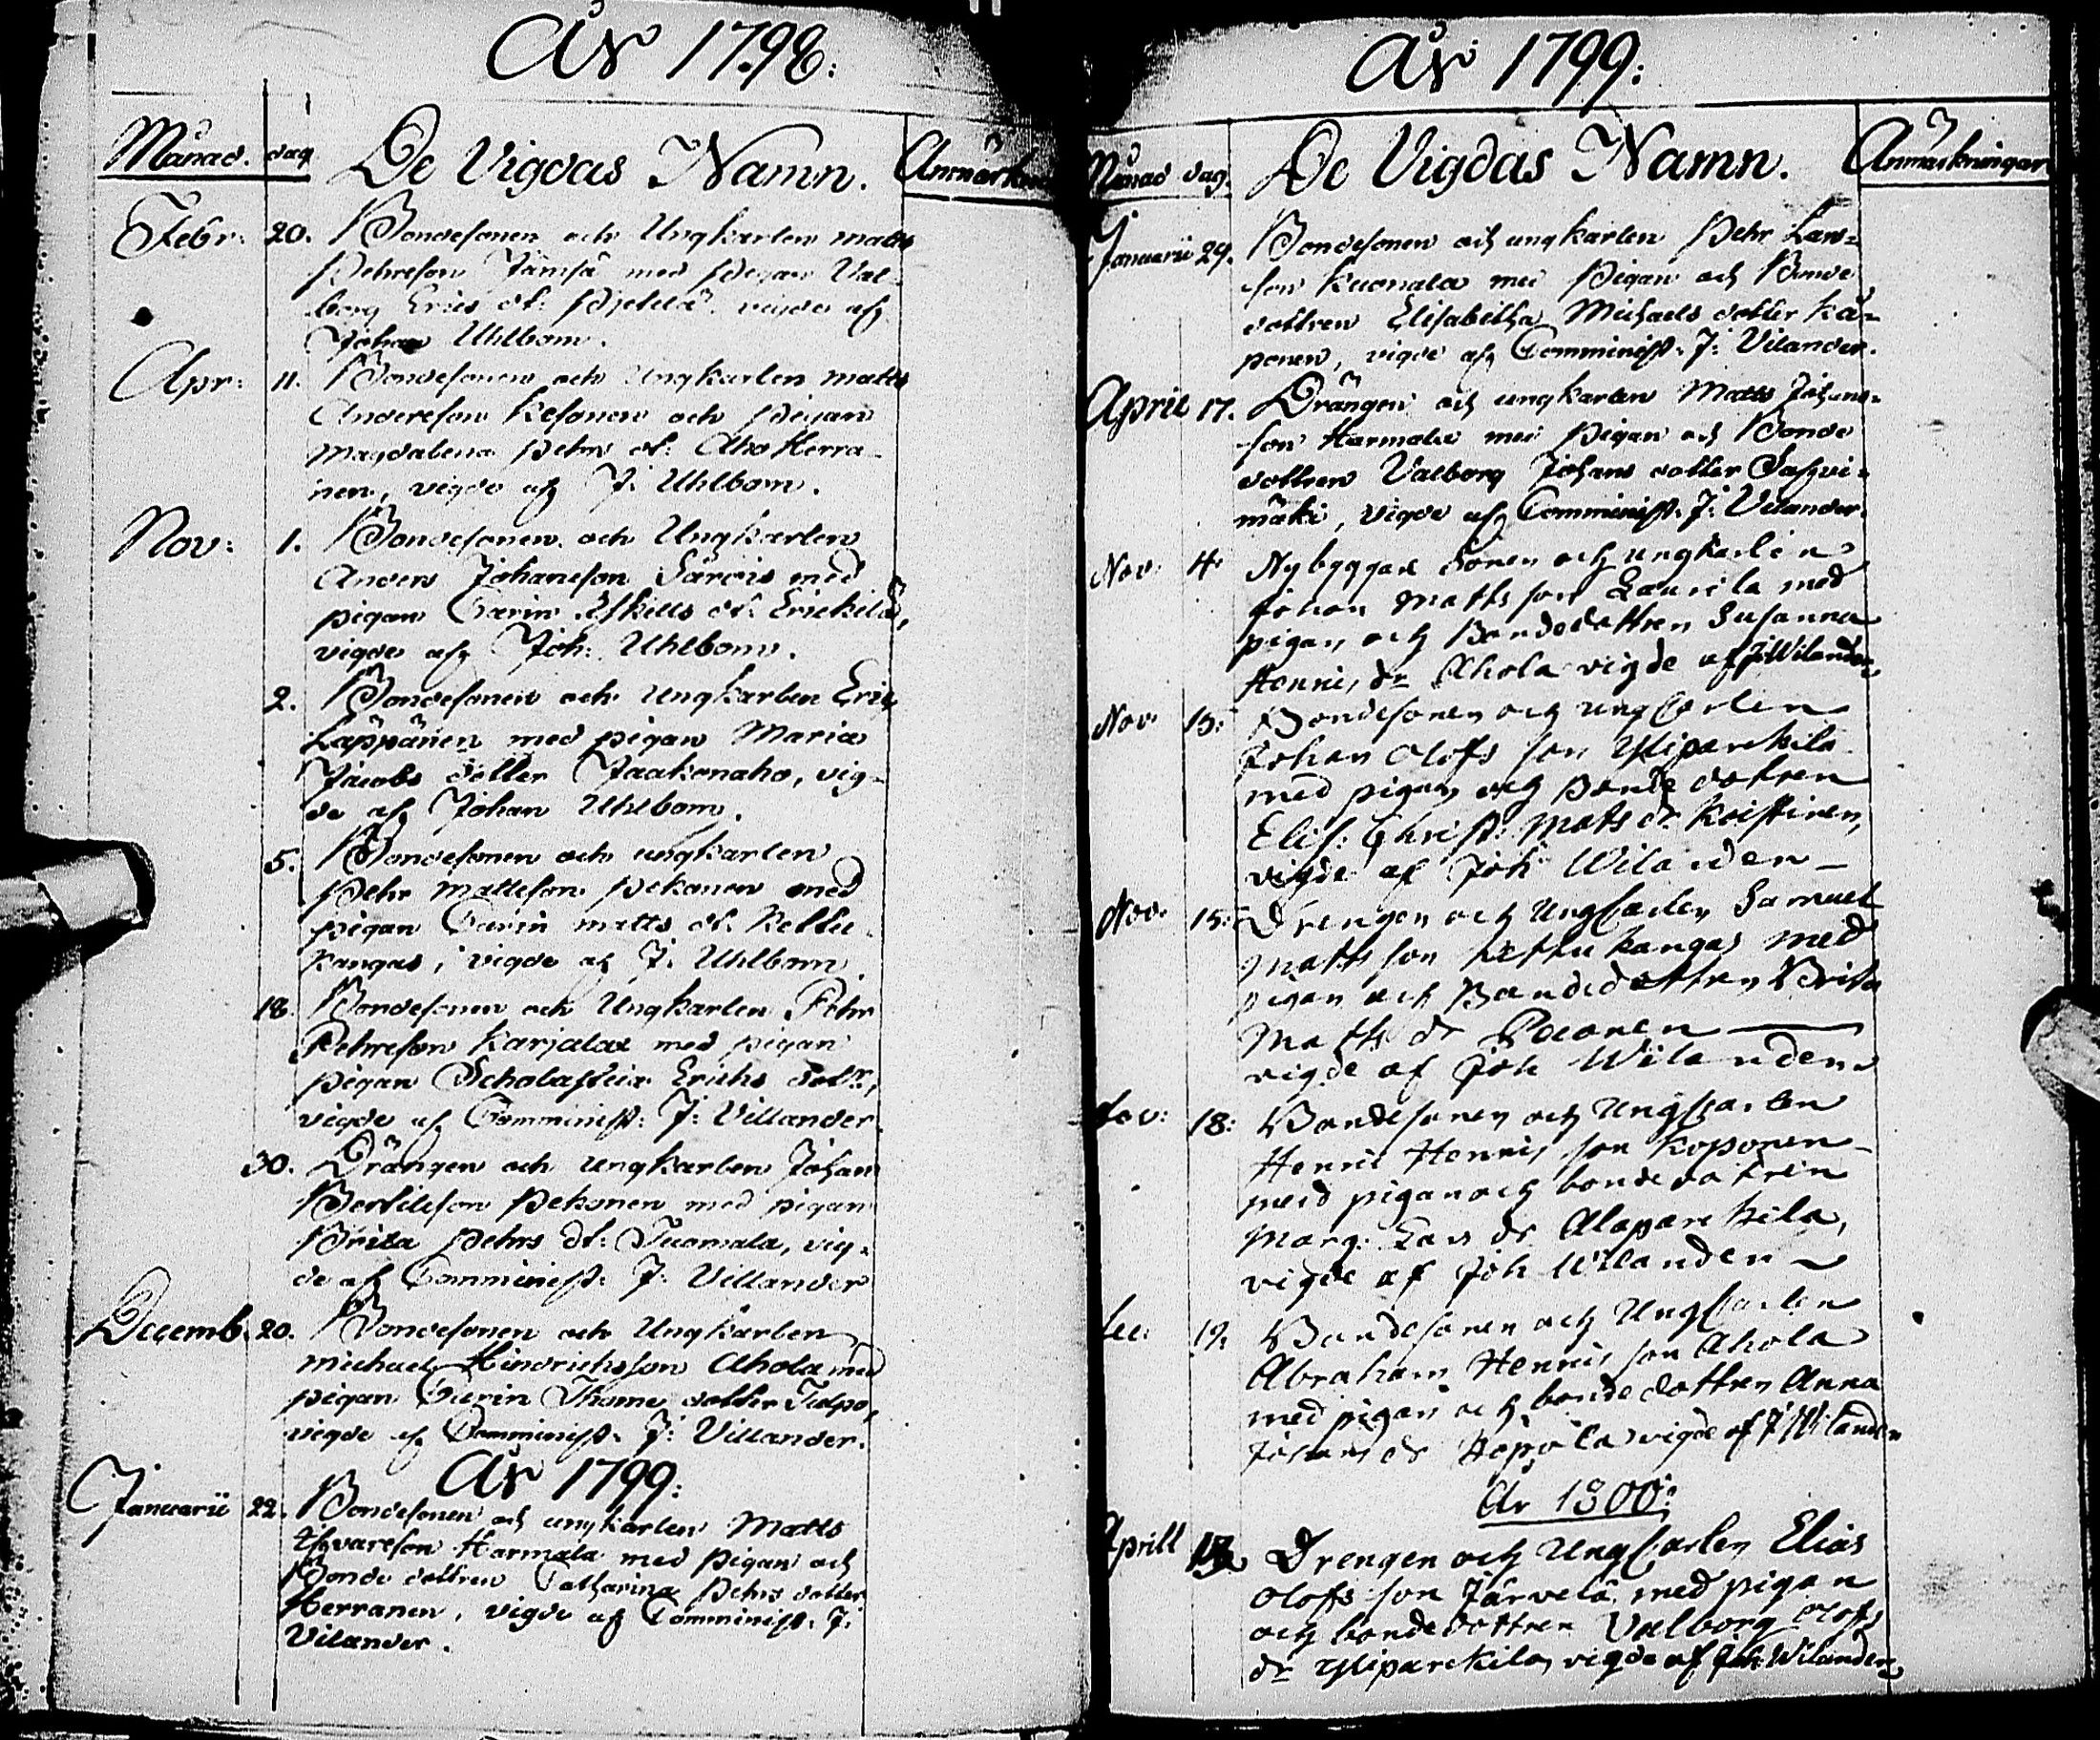 År 1798:
Månad. dag De Vigdas Namn. Anmärkn
Febr: 20. Bondesonen och Ungkarlen Matts
Pehrsson Jämsä med Pigan Val-
borg Erics dr: vigde af
Johan Uhlbom.
Apr: 11. Bondesonen och Ungkarlen Matts
Andersson Kesonen och Pigan
Magdalena Pehrs dr: Aho Herra-
nen, vigde af J: Uhlbom.
Nov: 1. Bondesonen och Ungkarlen
Anders Johansson Särvis med
pigan Carin Eskills dr: Erickilä,
vigde af Joh: Uhlbom.
2. Bondesonen och Ungkarlen Eric
Läppänen med pigan Maria
Jacobs dotter Jaakonaho, vig-
de af Johan Uhlbom.
5. Bondesonen och ungkarlen
Pehr Mattsson Pekonen med
pigan Carin Matts dr: Keltu-
kangas, vigde af J: Uhlbom.
18. Bondesonen och Ungkarlen Pehr
Pehrsson Karjalax med pigan
pigan Scholastica Erichs dottr,
vigde af Comminist: J: Villander
30. Drängen och Ungkarlen Johan
Bertilsson Pekonen med pigan
Brita Pehrs dr: Tuomala, vig-
de af Comminist: J: Villander
Decemb. 20. Bondesonen och Ungkarlen
Michael Hindrichsson Ahola med
pigan Carin Thome dotter Tulpo,
vigde af Comminist: J: Villander.
År 1799:
Januarii 22. Bondesonen och ungkarlen Matts
Harmala med Pigan och
Bonde dottren Catharina Pehrs dotter
Herranen, vigde af Comminist: J:
Vilander.
År 1799:
Månad dag. De Vigdas Namn. Anmärkningar
Januarii 29. Bondesonen och ungkarlen Pehr Lars-
son Kuonala med Pigan och Bonde
dottren Elisabetha Michaels dotter Kä-
ponen, vigde af Comminist: J: Vilander.
April 17. Drängen och ungkarlen Matts Johans-
son Harmala med Pigan och Bonde
dottren Valborg Johans dotter Saxvi-
mäki, vigde af Comminist: J: Vilander.
Nov: 4. Nybyggare Sonen och ungkarlen
Johan Matts son Laurila med
pigan och Bondedottren Susanna
Henrics dr Ahola vigde af J: Wilander
Nov: 15: Bondesonen och ungkarlen
Johan Olofs son Yliparckila
med pigan och Bonde dottren
Elis: Christ: Mats dr Koistinen,
vigde af Joh Wilander
Nov: 15: Drengen och Ungkarlen Samuel
Matts son Keltukangas med
pigan och Bondedottren Brita
Matts dr
vigde af Joh Wilander
Nov: 18: Bondesonen och Ungkarlen
Henric Henrics son Koponen
med pigan och bondedottren
Marg: Lars dr Alaparckila,
vigde af Joh Wilander
19. Bondesonen och Ungkarlen
Abraham Henrics son Ahola
med pigan och bondedottren Anna
Johans dr Hepola vigde af J: Wilander
År 1800:
Aprill Drengen och Ungkarlen Elias
Olofs son Järvelä, med pigan
och bondedottren Valborg Olofs
dr Yliparckila, vigde af Joh: Wilander